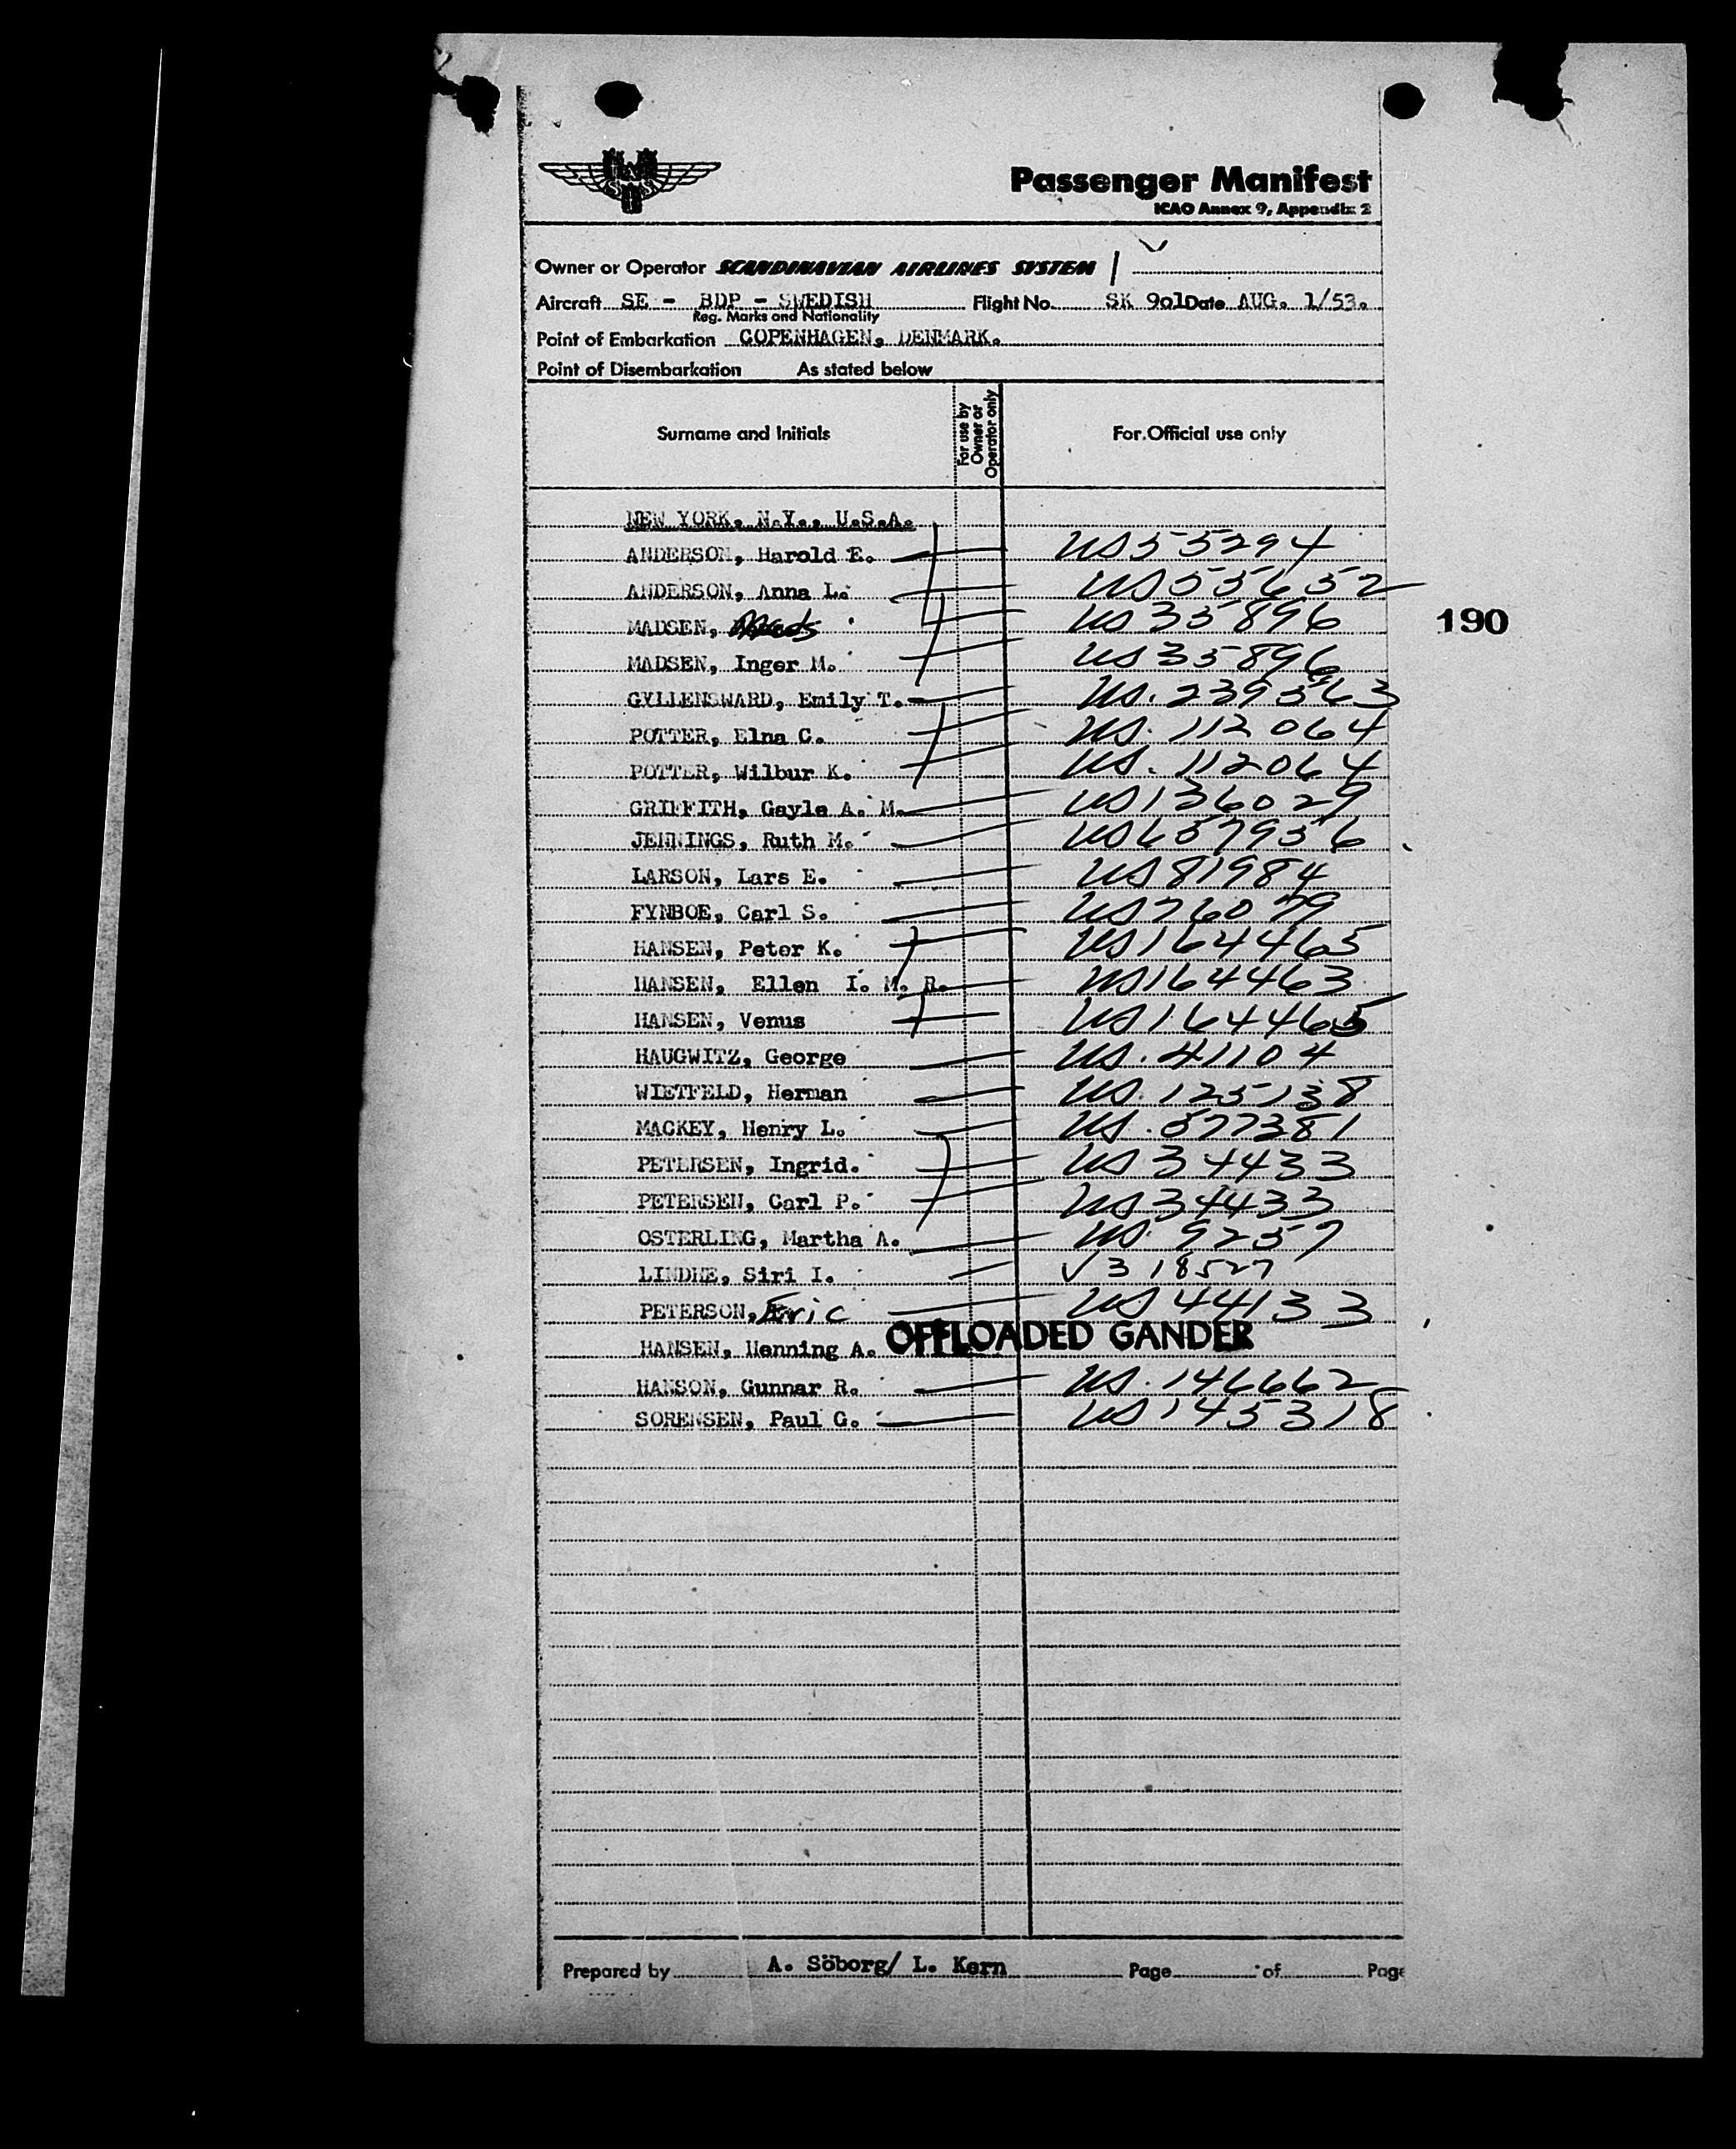 Passenger Manifest
ICAO Annex 9, Appendix 2
Owner or Operator SCANDINAVIAN AIRLINES SYSTEM
Aircraft SE - BDP - SWEDISH Flight No. SK 901 Date AUG. 1/53.
Reg. Marks and Nationality
Point of Embarkation COPENHAGEN, DENMARK.
Point of Disembarkation As stated below
Surname and Initials For use by Owner or Operator only For Official use only
NEW YORK, N.Y., U.S.A.
ANDERSON, Harold E. US55294
ANDERSON, Anna L. US55652
MADSEN, Mads US35896
190
MADSEN, Inger M. US35896
GYLLENSWARD, Emily T. US.239563
POTTER, Elna C. US. 112064
POTTER, Wilbur K. US. 112064
GRIFFITH, Gayle A. M. US136029
JENNINGS, Ruth M. US657956
LARSON, Lars E. US81984
FYNBOE, Carl S. US76079
HANSEN, Peter K. US164465
HANSEN, Ellen I. M. R. US164463
HANSEN, Venus US164465
HAUGWITZ, George US.41104
WIETFELD, Herman US.125138
MACKEY, Henry L. US.577381
PETERSEN, Ingrid. US34433
PETERSEN, Carl P. US34433
OSTERLING, Martha A. US.9257
LINDHE, Siri I. V318527
PETERSON, Eric US44133
HANSEN, Henning A. OFFLOADED GANDER
HANSON, Gunnar R. US.146662
SORENSEN, Paul G. US145318
Prepared by A. Söborg/ L. Kern Page of Page